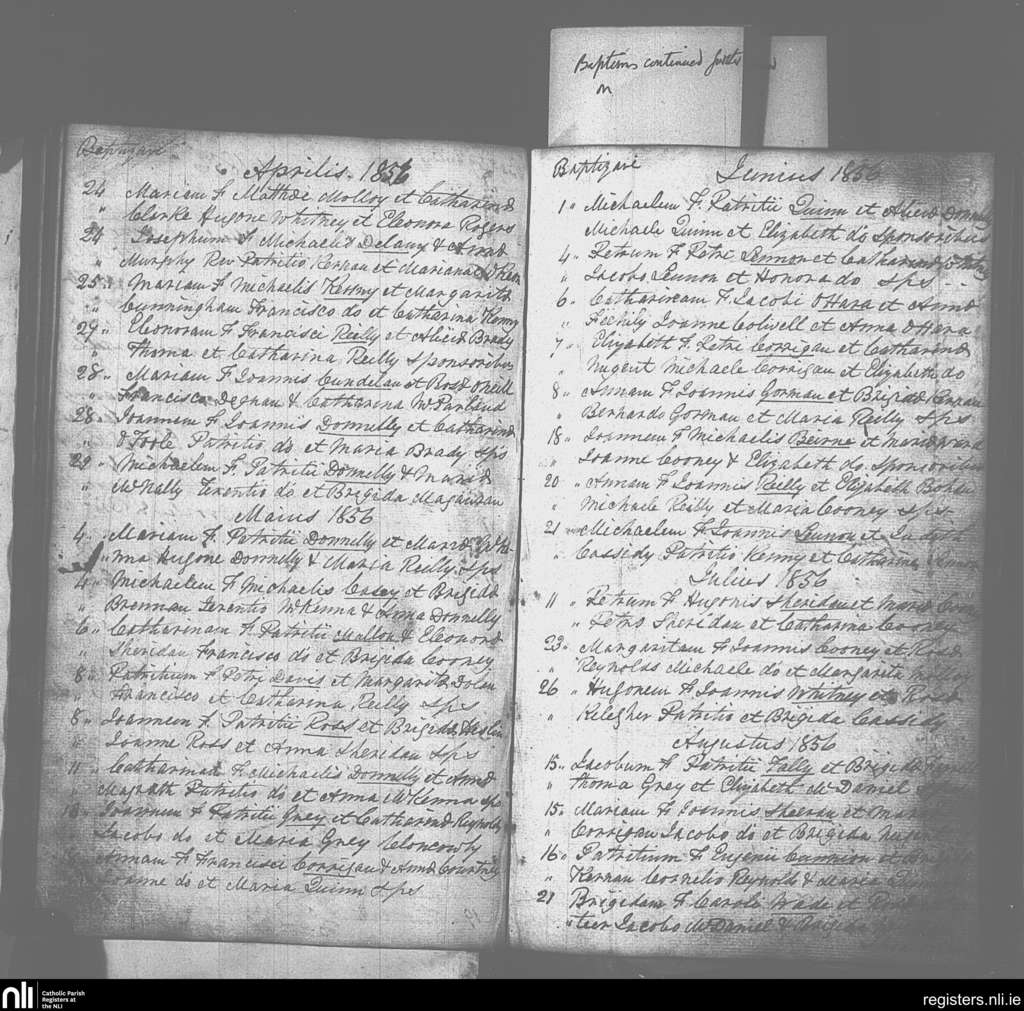 Baptisms continued further
on
Baptizavi
Aprilis 1856
24 Mariam F Matthei Molloy et Catharinæ
" Clarke Hugone Whitney et Eleonora Rogers
24 Josephum F Michaelis Delany & Annæ
" Murphy Rev Patritio Kernan et Mariana
25 " Mariam F Michaelis Kenny et Margaritæ
" Cunningham Francisco do et Catharina Kenny
27 Eleonoram F Francisci Reilly et Aliciæ Brady
" Thoma et Catharina Reilly Sponsoribus
28 " Mariam F Joannis Cundelan et Rosæ ONeill
" Francisco Degnan & Catharina McParland
28 " Joannem F Joannis Donnelly et Catharinæ
" OToole Patritio do et Maria Brady Sps
29 " Michaelem F. Patritii Donnelly & Mariæ
" McNally Terentio do et Brigida Magauran
Maius 1856
4 " Mariam F. Patritii Donnelly et Mariæ
" Hugone Donnelly & Maria Reilly Sps
4 " Michaelem F Michaelis Casey et Brigidæ
" Brennan Terentio McKenna & Anna Donnelly
6 " Catharinam F. Patritii Mallon & Eleonoræ
" Sheridan Francisco do et Brigida Cooney
8 " Patritium F Petri Davis et Margaritæ Dolan
" Francisco et Catharina Reilly Sps
8 " Joannem F. Patritii Ross et Brigidæ
" Joanne Ross et Anna Sheridan Sps
11 " Catharinam F. Michaelis Donnelly et Annæ
" Magrath Patritio do et Anna McKenna Sps
Joannem F Patritii Grey et Catharinæ Reynolds
Jacobo do et Maria Grey Cloncowly
Annam F Francisci Corrigan & Annæ Courtney
Joanne do et Maria Quinn Sps
Baptizavi
Junius 1856
1 " Michaelem F. Patritii Quinn et Aliciæ Donnelly
Michaele Quinn et Elizabeth do Sponsoribus
4 " Petrum F. Petri Lennon et Catharinæ
" Jacobo Lennon et Honora do Sps
6 " Catharinam F. Jacobi OHara et Annæ
" Feehily Joanne Colwell et Anna OHara
7 " Elizabeth F. Petri Corrigan et Catharinæ
" Nugent Michaele Corrigan et Elizabeth do
8 " Annam F Joannis Gorman et Brigidæ
" Bernardo Gorman et Maria Reilly Sps
18 " Joannem F Michaelis Beirne et Mariæ
" Joanne Cooney & Elizabeth do Sponsoribus
20 " Annam F Joannis Reilly et Elizabeth
" Michaele Reilly et Maria Cooney Sps
21 " Michaelem F Joannis Lennon et Judith
" Cassidy Patritio Kenny et Catharina
Julius 1856
11 " Petrum F Hugonis Sheridan et Mariæ
" Petro Sheridan et Catharina Cooney
23 " Margaritam F Joannis Cooney et Rosæ
" Reynolds Michaele do et Margarita
26 " Hugonem F Joannis Whitney et Rosæ
" Kilegher Patritio et Brigida Cassidy
Augustus 1856
15 " Jacobum F Patritii Fally et Brigidæ
" Thoma Grey et Elizabeth McDaniel
15 " Mariam F Joannis Sheeran et
" Corrigan Jacobo do et Brigida Nugent
16 " Patritium F Eugenii
" Kernan Cornelio Reynolds & Maria
21 Brigidam F Caroli Wade et
" Jacobo McDaniel &
nli
Catholic Parish
Registers at
the NLI
registers.nli.ie